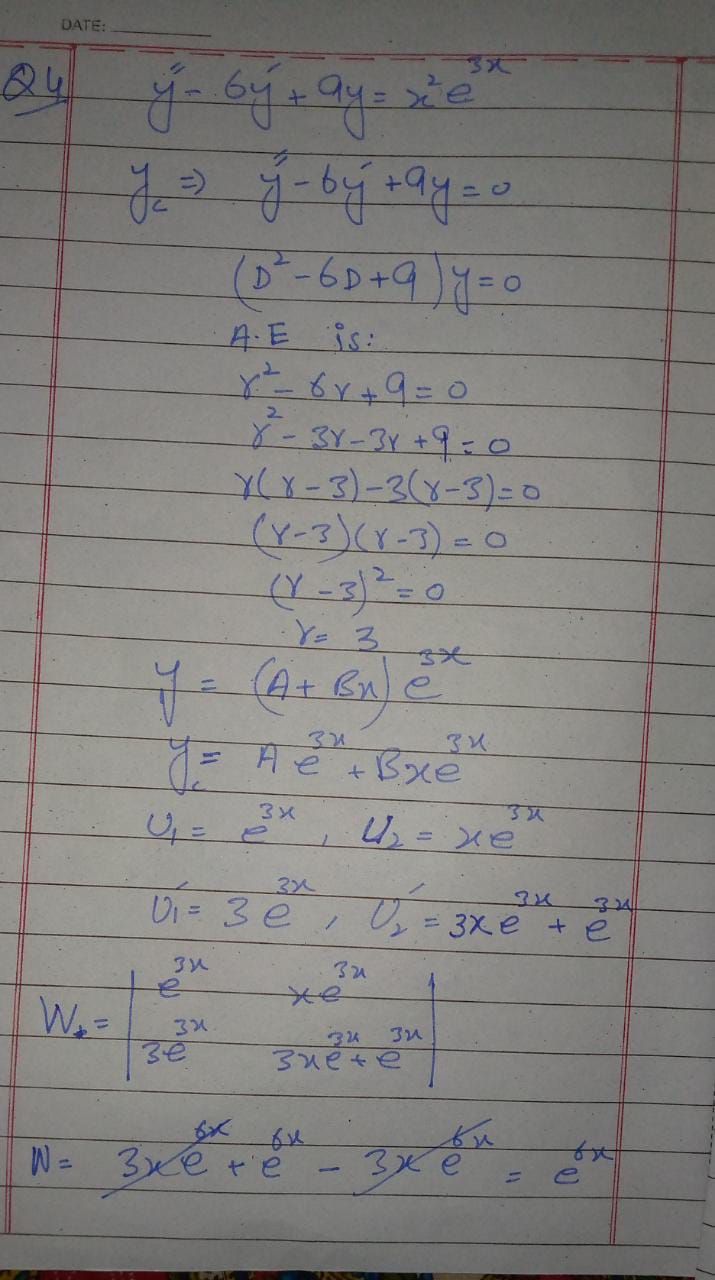 DATE:
Q4 y″ - 6y′ + 9y = x²e³ˣ
y꜀ ⇒ y″ - 6y′ + 9y = 0
(D² - 6D + 9)y = 0
A.E is:
r² - 6r + 9 = 0
r² - 3r - 3r + 9 = 0
r(r - 3) - 3(r - 3) = 0
(r - 3)(r - 3) = 0
(r - 3)² = 0
r = 3
y = (A + Bx)e³ˣ
y꜀ = Ae³ˣ + Bxe³ˣ
U₁ = e³ˣ , U₂ = xe³ˣ
U₁′ = 3e³ˣ , U₂′ = 3xe³ˣ + e³ˣ
W = | e³ˣ xe³ˣ |
| 3e³ˣ 3xe³ˣ + e³ˣ |
W = 3xe⁶ˣ + e⁶ˣ - 3xe⁶ˣ = e⁶ˣ